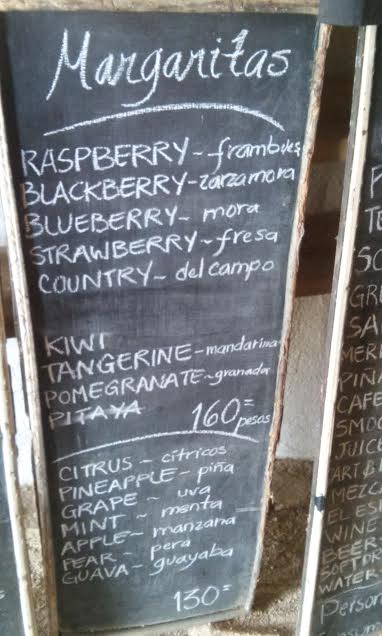 Margaritas
RASPBERRY - frambues
BLACKBERRY - zarzamora
BLUEBERRY - mora
STRAWBERRY - fresa
COUNTRY - del campo
KIWI
TANGERINE - mandarina
POMEGRANATE - granada
PITAYA
160= pesos
CITRUS - cítricos
PINEAPPLE - piña
GRAPE - uva
MINT - menta
APPLE - manzana
PEAR - pera
GUAVA - guayaba
130=
GR
SA
MER
PIÑA
CAFE
SMOO
JUICE
ART & 
MEZC
EL ES
WINE
BEER
SOFT DR
WATER
Person